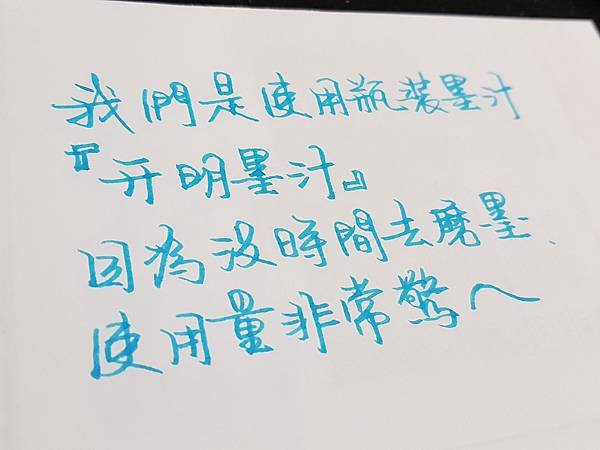 我們是使用瓶裝墨汁
『开明墨汁』
因為沒時間去磨墨、
使用量非常驚人